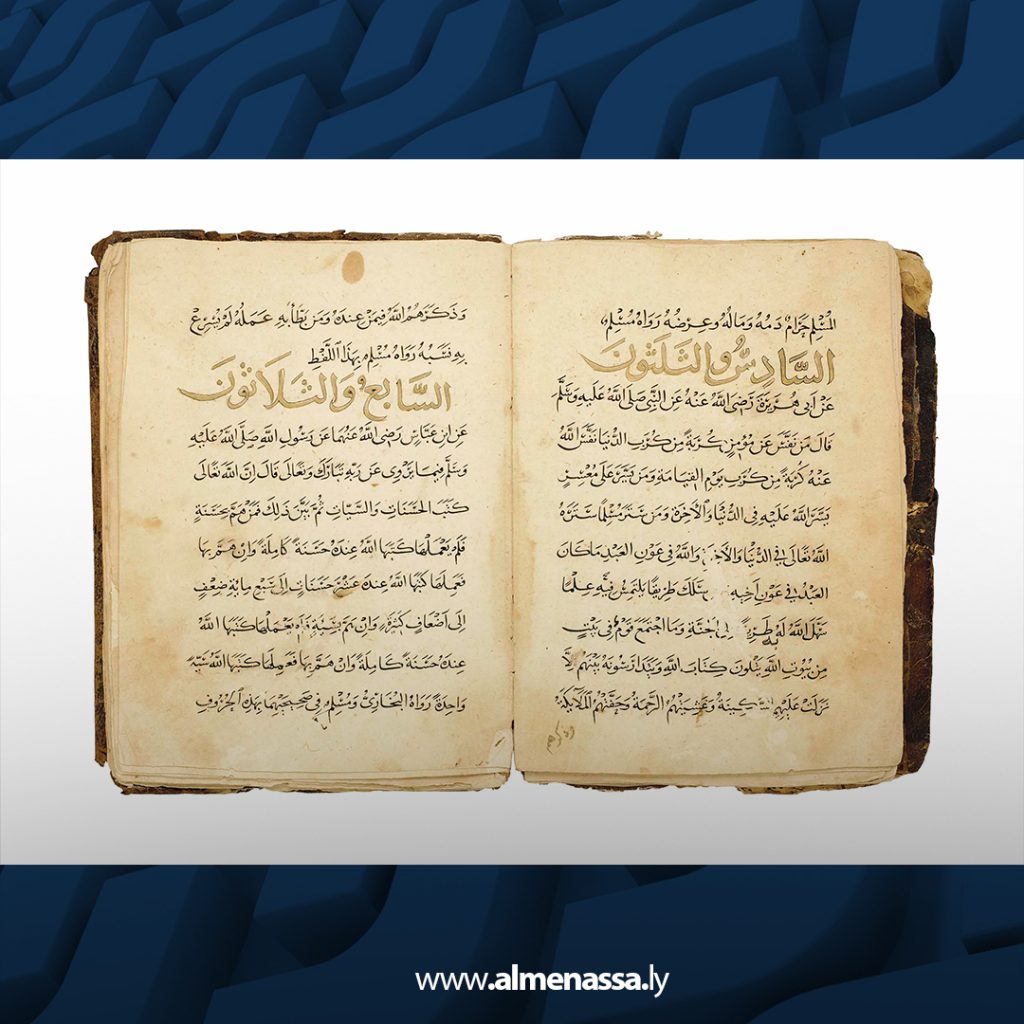 المسلم حرام دمه وماله وعرضه رواه مسلم
السَّادِسُ والثَّلثُونَ
عن ابى هُرَيْرَةَ رَضِىَ اللهُ عَنْهُ عَنِ النَّبِى صَلَّى اللهُ عَلَيْهِ وَسَلَّمَ
قَالَ مَنْ نَفَّسَ عَنْ مُؤْمِنٍ كُرْبَةً مِنْ كُرَبِ الدُّنْيَا نَفَّسَ اللهُ
عَنْهُ كُرْبَةً مِنْ كُرَبِ يَوْمِ القِيَامَةِ وَمَنْ يَسَّرَ عَلَى مُعْسِرٍ
يَسَّرَ اللهُ عَلَيْهِ فِى الدُّنْيَا وَالْآخِرَةِ وَمَنْ سَتَرَ مُسْلِمًا سَتَرَهُ
اللهُ تَعَالَى فِى الدُّنْيَا وَالآخِرَةِ وَاللهُ فِى عَوْنِ العَبْدِ مَا كَانَ
العَبْدُ فِى عَوْنِ اَخِيهِ سَلَكَ طَرِيقًا يَلْتَمِسُ فِيهِ عِلْمًا
سَهَّلَ اللهُ لَهُ بِهِ طَرِيقًا اِلَى الجَنَّةِ وَمَا اجْتَمَعَ قَوْمٌ فِى بَيْتٍ
مِنْ بُيُوتِ اللهِ يَتْلُونَ كِتَابَ اللهِ وَيَتَدَارَسُونَهُ بَيْنَهُمْ اِلَّا
نَزَلَتْ عَلَيْهِمُ السَّكِينَةُ وَغَشِيَتْهُمُ الرَّحْمَةُ وَحَفَّتْهُمُ المَلَائِكَةُ
وذكرهم
وَذَكَرَهُمُ اللهُ فِيمَنْ عِنْدَهُ وَمَنْ بَطَّأَ بِهِ عَمَلُهُ لَمْ يُسْرِعْ
بِهِ نَسَبُهُ رَوَاهُ مُسْلِمٌ بِهَذَا اللَّفْظِ
السَّابِعُ وَالثَّلَاثُونَ
عَنِ ابْنِ عَبَّاسٍ رَضِىَ اللهُ عَنْهُمَا عَنْ رَسُولِ اللهِ صَلَّى اللهُ عَلَيْهِ
وَسَلَّمَ فِيمَا يَرْوِى عَنْ رَبِّهِ تَبَارَكَ وَتَعَالَى قَالَ اِنَّ اللهَ تَعَالَى
كَتَبَ الحَسَنَاتِ وَالسَّيِّئَاتِ ثُمَّ بَيَّنَ ذَلِكَ فَمَنْ هَمَّ بِحَسَنَةٍ
فَلَمْ يَعْمَلْهَا كَتَبَهَا اللهُ عِنْدَهُ حَسَنَةً كَامِلَةً وَاِنْ هَمَّ بِهَا
فَعَمِلَهَا كَتَبَهَا اللهُ عِنْدَهُ عَشْرَ حَسَنَاتٍ اِلَى سَبْعِ مِايَةِ ضِعْفٍ
اِلَى اَضْعَافٍ كَثِيرَةٍ وَاِنْ هَمَّ بِسَيِّئَةٍ فَلَمْ يَعْمَلْهَا كَتَبَهَا اللهُ
عِنْدَهُ حَسَنَةً كَامِلَةً وَاِنْ هَمَّ بِهَا فَعَمِلَهَا كَتَبَهَا اللهُ سَيِّئَةً
وَاحِدَةً رَوَاهُ البُخَارِىُّ وَمُسْلِمٌ فِى صَحِيحَيْهِمَا بِهَذِهِ الحُرُوفِ
www.almenassa.ly